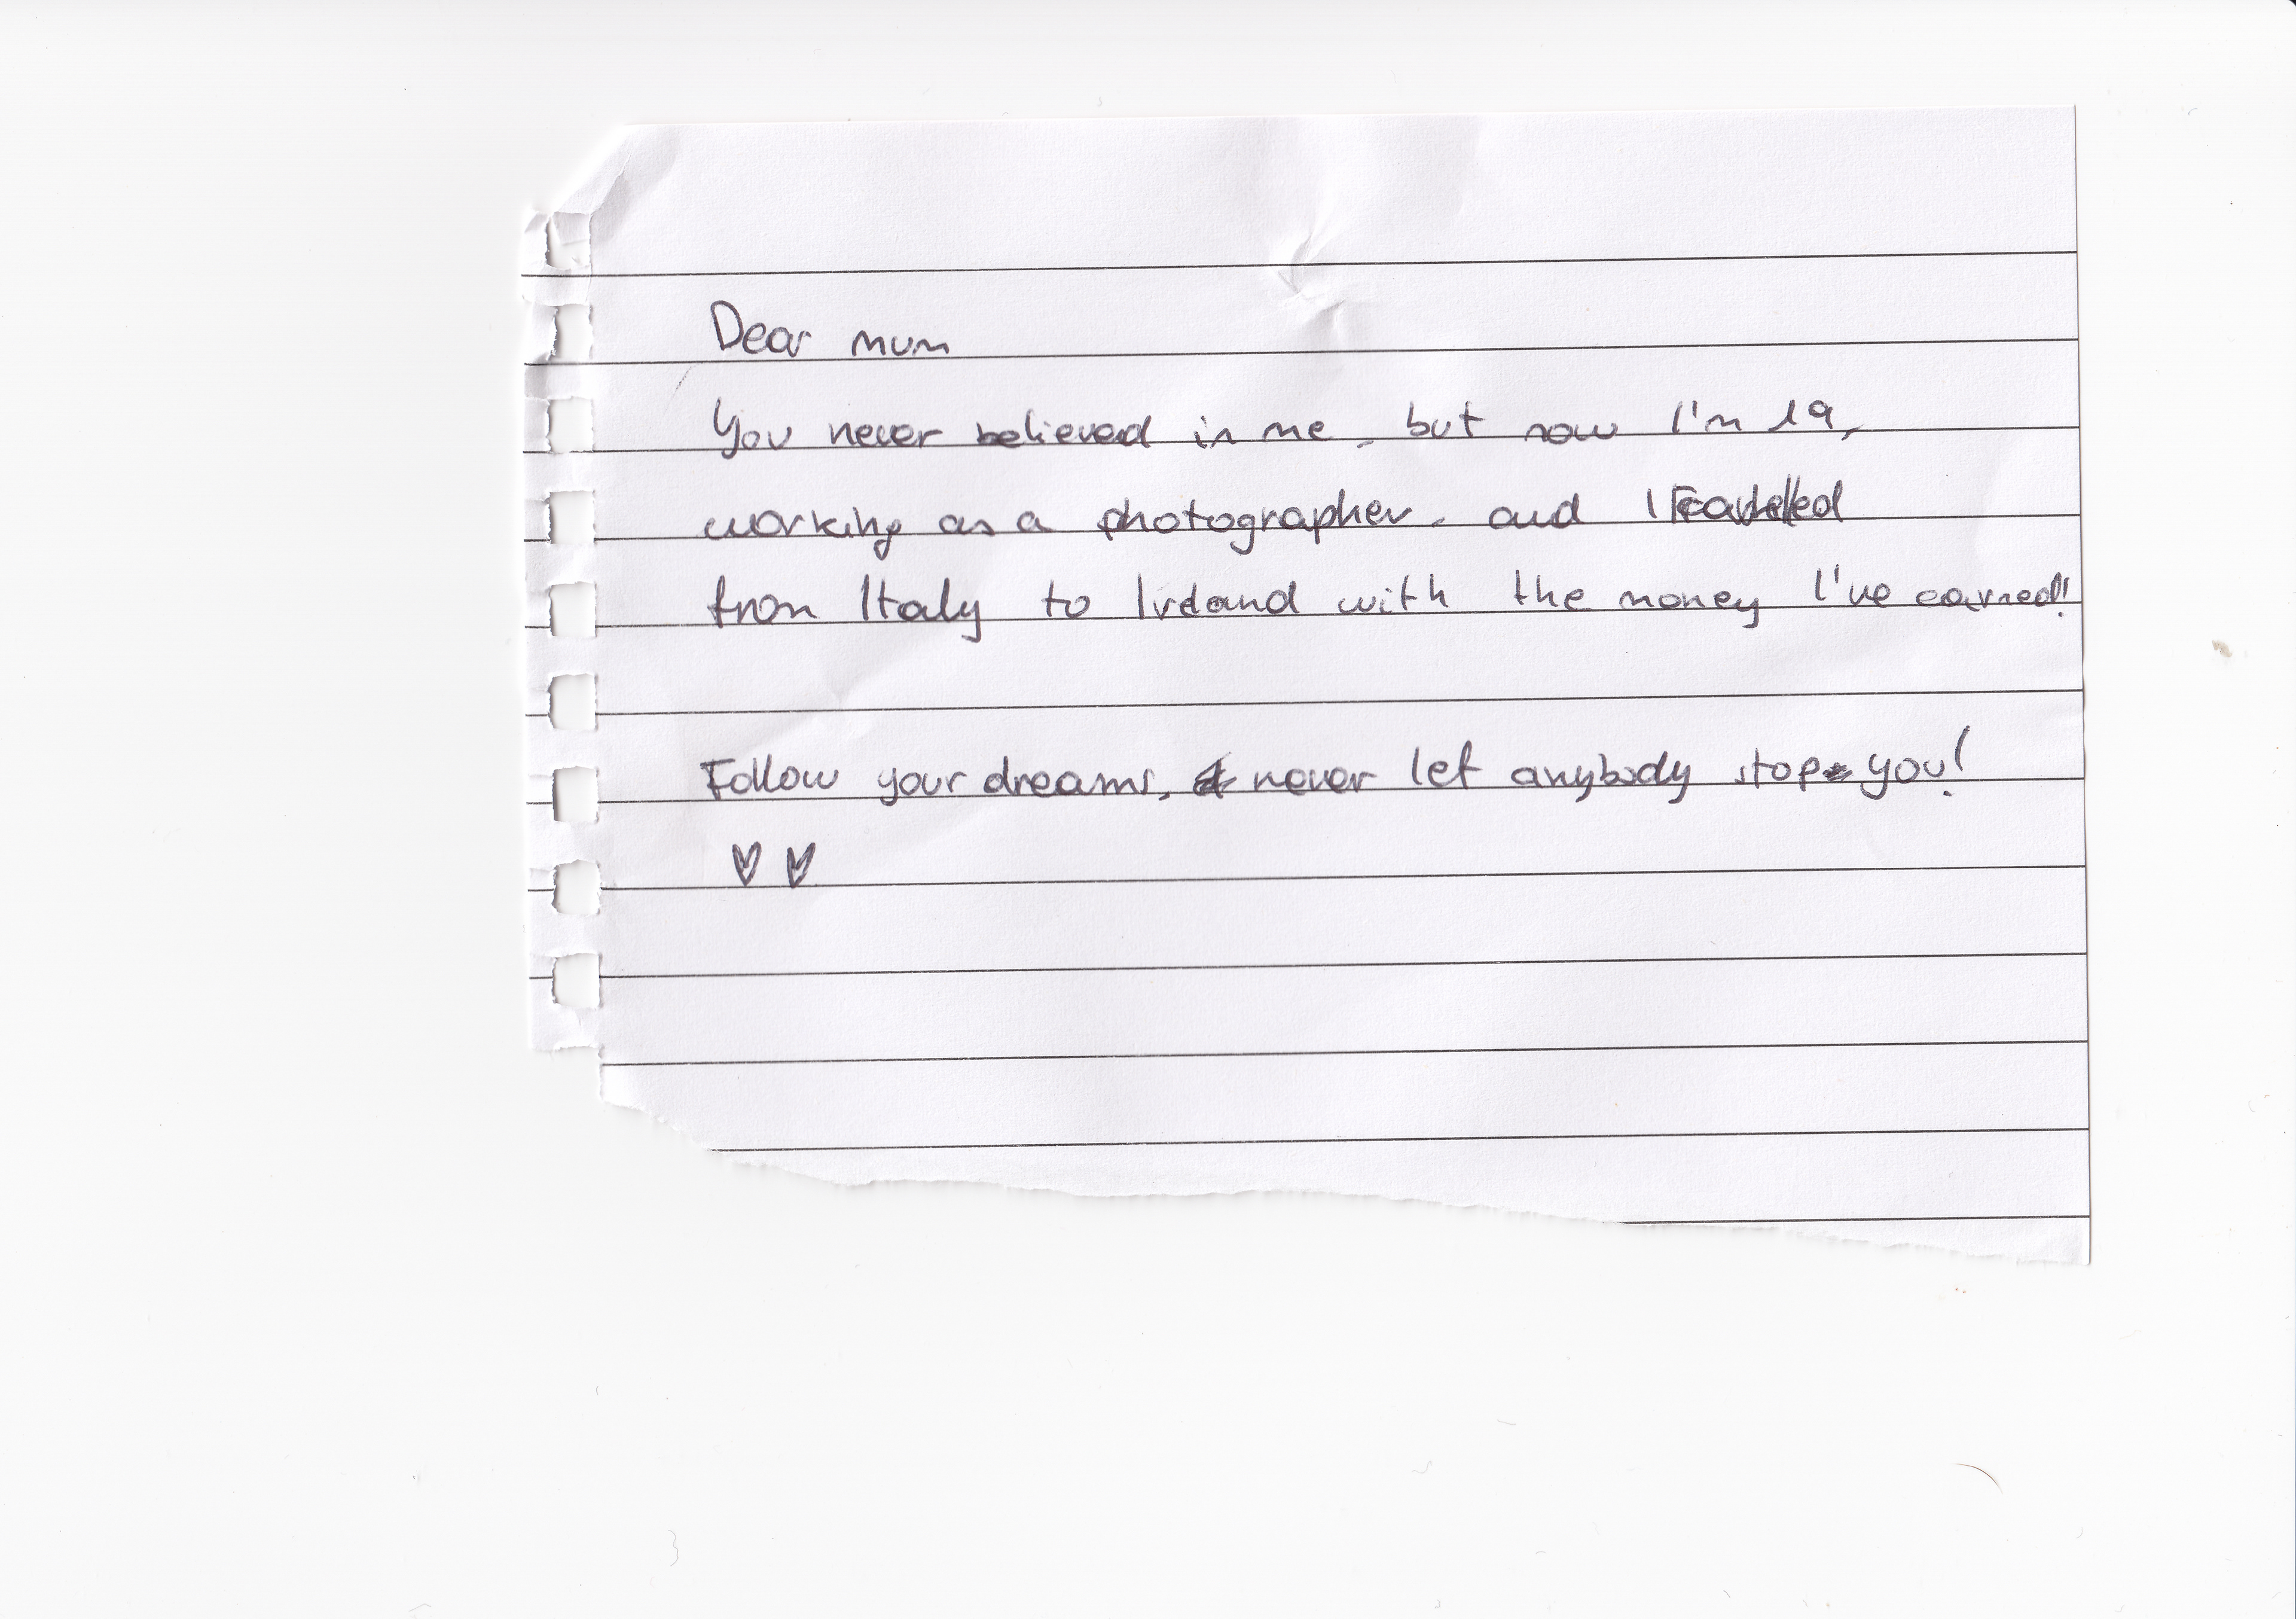 Dear mum
You never believed in me, but now I'm 19,
working as a photographer, and I travelled
from Italy to Ireland with the money I've earned!
Follow your dreams, never let anybody stop you!